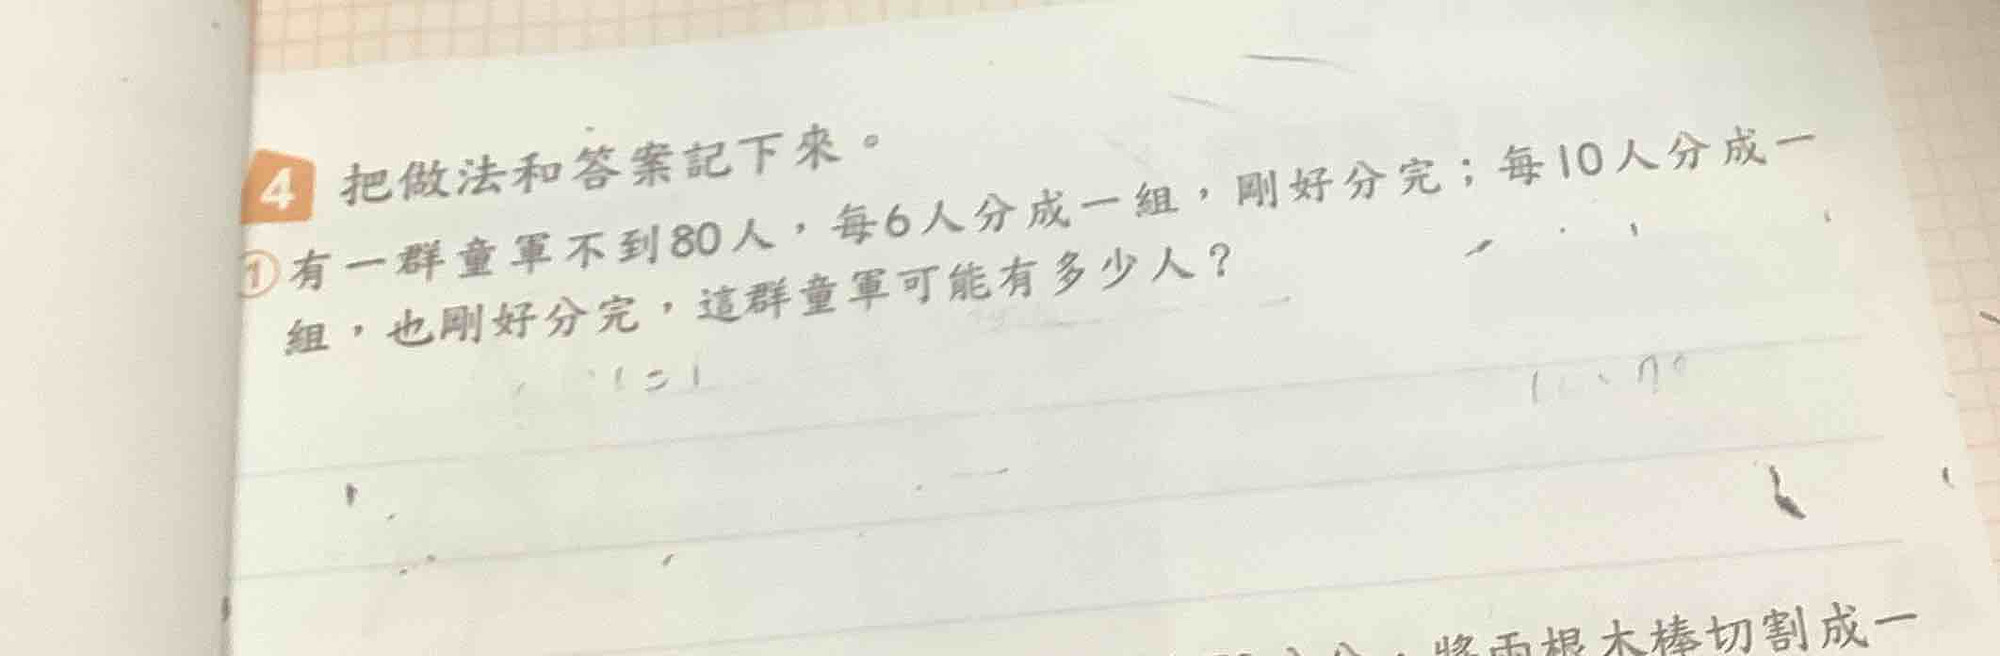 4 把做法和答案記下來。
①有一群童軍不到80人，每6人分成一組，剛好分完；每10人分成一
組，也剛好分完，這群童軍可能有多少人？
將兩根木棒切割成一